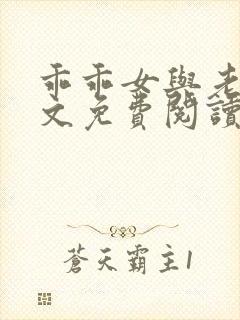 乖乖女與老
文免費閱讀
蒼天霸主1